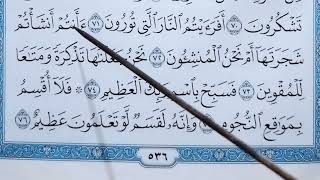 تَشْكُرُونَ ٧٠ أَفَرَءَيْتُمُ ٱلنَّارَ ٱلَّتِى تُورُونَ ٧١ ءَأَنتُمْ أَنشَأْتُمْ
شَجَرَتَهَآ أَمْ نَحْنُ ٱلْمُنشِـُٔونَ ٧٢ نَحْنُ جَعَلْنَٰهَا تَذْكِرَةً وَمَتَٰعًا
لِّلْمُقْوِينَ ٧٣ فَسَبِّحْ بِٱسْمِ رَبِّكَ ٱلْعَظِيمِ ٧٤ ۞ فَلَآ أُقْسِمُ
بِمَوَٰقِعِ ٱلنُّجُومِ ٧٥ وَإِنَّهُۥ لَقَسَمٌ لَّوْ تَعْلَمُونَ عَظِيمٌ ٧٦
٥٣٦